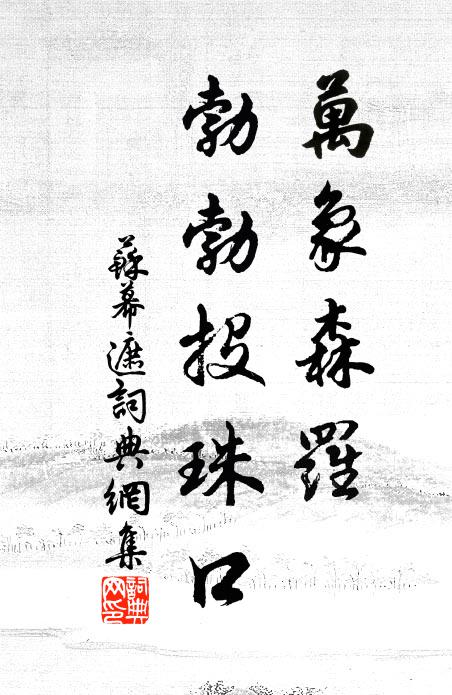 萬象森羅
勃勃投珠口
蘇幕遮詞典網集
詞典網印